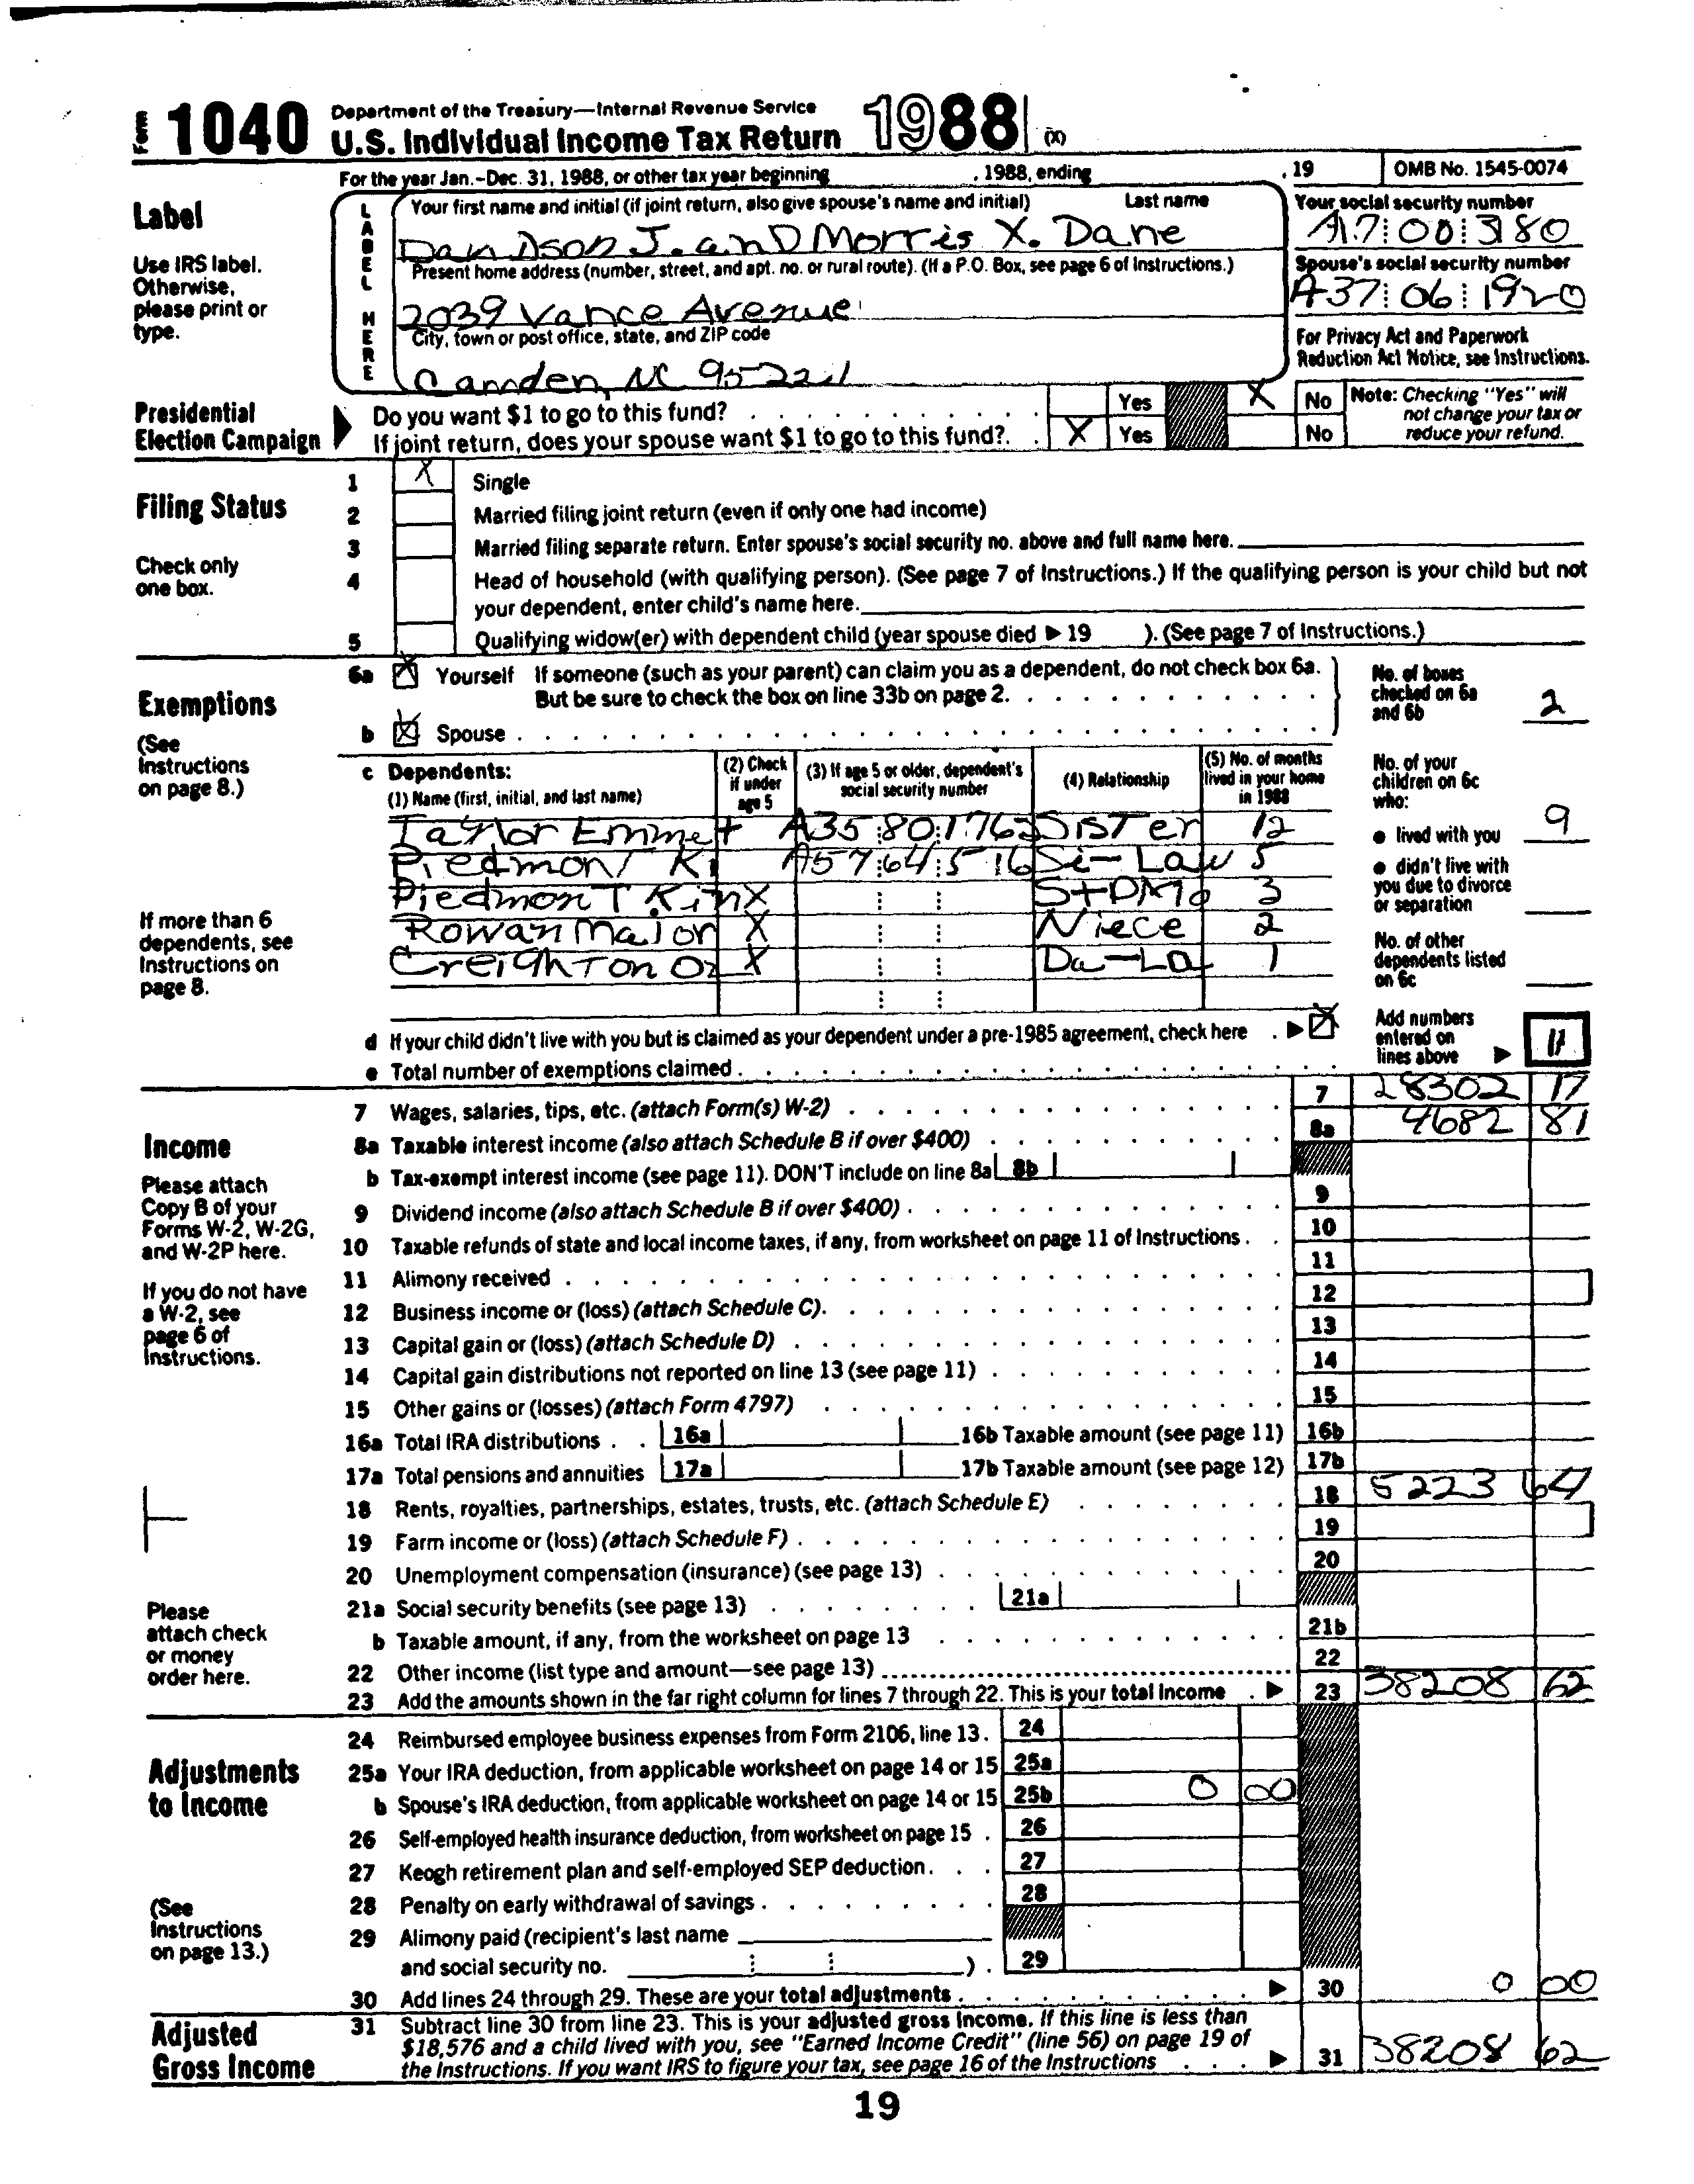 Form 1040 Department of the Treasury—Internal Revenue Service
U.S. Individual Income Tax Return 1988 (X)
For the year Jan.-Dec. 31, 1988, or other tax year beginning , 1988, ending , 19 OMB No. 1545-0074
Label
Use IRS label. Otherwise, please print or type.
LABEL HERE
Your first name and initial (if joint return, also give spouse's name and initial) Last name
J. and Morris X. Dane
Your social security number
Present home address (number, street, and apt. no. or rural route). (If a P.O. Box, see page 6 of Instructions.)
2039 Vance Avenue
Spouse's social security number
A37 06 1920
City, town or post office, state, and ZIP code
Camden, NC 95221
For Privacy Act and Paperwork Reduction Act Notice, see Instructions.
Presidential Election Campaign
Do you want $1 to go to this fund? Yes X No
If joint return, does your spouse want $1 to go to this fund? X Yes No
Note: Checking "Yes" will not change your tax or reduce your refund.
Filing Status
Check only one box.
1 X Single
2 Married filing joint return (even if only one had income)
3 Married filing separate return. Enter spouse's social security no. above and full name here.
4 Head of household (with qualifying person). (See page 7 of Instructions.) If the qualifying person is your child but not
your dependent, enter child's name here.
5 Qualifying widow(er) with dependent child (year spouse died ▶ 19 ). (See page 7 of Instructions.)
Exemptions
(See Instructions on page 8.)
6a X Yourself If someone (such as your parent) can claim you as a dependent, do not check box 6a.
But be sure to check the box on line 33b on page 2.
b X Spouse
No. of boxes checked on 6a and 6b 2
c Dependents:
(1) Name (first, initial, and last name) (2) Check if under age 5 (3) If age 5 or older, dependent's social security number (4) Relationship (5) No. of months lived in your home in 1988
Taylor Emmet A35 80 1762 Sister 12
Piedmont Ki A57 64 516 Si-Law 5
Piedmont Kin X StPMo 3
Rowan Major X Niece 2
Creighton Oz X Da-La 1
No. of your children on 6c who:
● lived with you 9
● didn't live with you due to divorce or separation
No. of other dependents listed on 6c
If more than 6 dependents, see Instructions on page 8.
d If your child didn't live with you but is claimed as your dependent under a pre-1985 agreement, check here ▶ X
e Total number of exemptions claimed
Add numbers entered on lines above ▶ 11
Income
Please attach Copy B of your Forms W-2, W-2G, and W-2P here.
If you do not have a W-2, see page 6 of Instructions.
Please attach check or money order here.
7 Wages, salaries, tips, etc. (attach Form(s) W-2) 7 28302 17
8a Taxable interest income (also attach Schedule B if over $400) 8a 4682 81
b Tax-exempt interest income (see page 11). DON'T include on line 8a 8b
9 Dividend income (also attach Schedule B if over $400) 9
10 Taxable refunds of state and local income taxes, if any, from worksheet on page 11 of Instructions 10
11 Alimony received 11
12 Business income or (loss) (attach Schedule C) 12
13 Capital gain or (loss) (attach Schedule D) 13
14 Capital gain distributions not reported on line 13 (see page 11) 14
15 Other gains or (losses) (attach Form 4797) 15
16a Total IRA distributions 16a 16b Taxable amount (see page 11) 16b
17a Total pensions and annuities 17a 17b Taxable amount (see page 12) 17b
18 Rents, royalties, partnerships, estates, trusts, etc. (attach Schedule E) 18 5223 64
19 Farm income or (loss) (attach Schedule F) 19
20 Unemployment compensation (insurance) (see page 13) 20
21a Social security benefits (see page 13) 21a
b Taxable amount, if any, from the worksheet on page 13 21b
22 Other income (list type and amount—see page 13) 22
23 Add the amounts shown in the far right column for lines 7 through 22. This is your total income ▶ 23 38208 62
Adjustments to Income
(See Instructions on page 13.)
24 Reimbursed employee business expenses from Form 2106, line 13. 24
25a Your IRA deduction, from applicable worksheet on page 14 or 15 25a
b Spouse's IRA deduction, from applicable worksheet on page 14 or 15 25b 0 00
26 Self-employed health insurance deduction, from worksheet on page 15 26
27 Keogh retirement plan and self-employed SEP deduction 27
28 Penalty on early withdrawal of savings 28
29 Alimony paid (recipient's last name
and social security no. ) 29
30 Add lines 24 through 29. These are your total adjustments ▶ 30 0 00
Adjusted Gross Income
31 Subtract line 30 from line 23. This is your adjusted gross income. If this line is less than
$18,576 and a child lived with you, see "Earned Income Credit" (line 56) on page 19 of
the Instructions. If you want IRS to figure your tax, see page 16 of the Instructions ▶ 31 38208 62
19